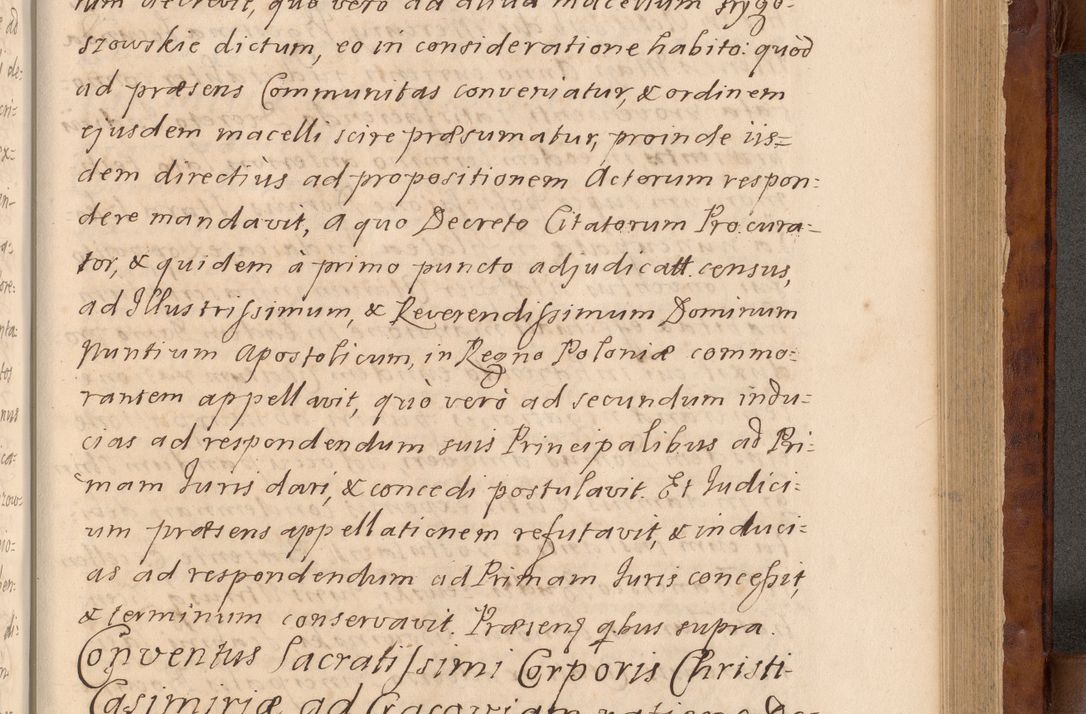 tum decrevit, quo vero ad aliud macellum Rygo-
szowskie dictum, eo in consideratione habito: quòd
ad præsens Communitas conveniatur, & ordinem
ejusdem macelli scire præsumatur, proinde iis=
dem directiùs ad propositionem Actorum respon:
dere mandavit, A quo Decreto Citatorum Procura-
tor, & quidem à primo puncto adjudicatt. census,
ad Illustrissimum, & Reverendissimum Dominum
Nuntium Apostolicum, in Regno Poloniæ commo:
rantem appellavit, quò verò ad secundum indu=
cias ad respondendum suis Principalibus ad Pri-
mam Iuris dari, & concedi postulavit. Et Iudici:
um præsens appellationem refutavit, & induci-
as ad respondendum ad Primam Iuris concessit,
& terminum conservavit. Præsent. qbus supra.
Conventus Sacratissimi Corporis Christi-
Casimiriæ ad Cracoviam ratione De-